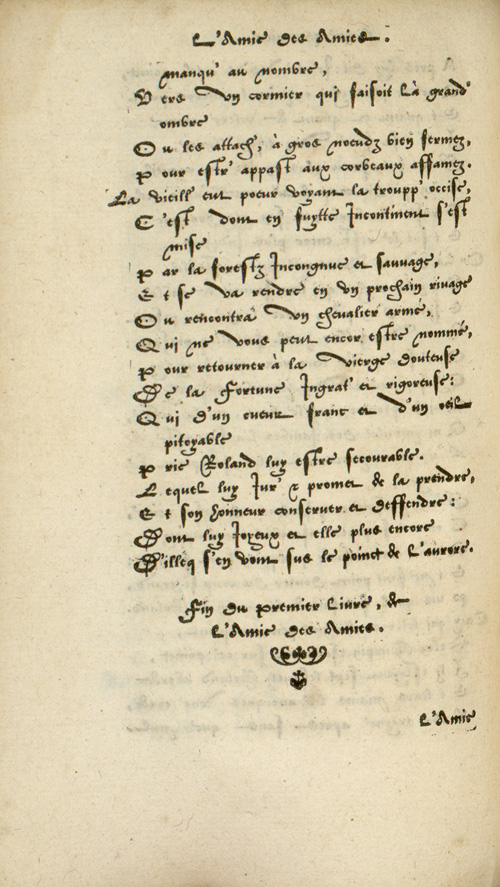 L'Amie des Amies.
manqu' au nombre,
Vers un cormier qui faisoit là grand'
ombre
Ou les attach', à gros noeudz bien fermez,
Pour estr' appast aux corbeaux affamez.
La vieill' eut poeur voyant la troupp' occise,
C'est dont en fuytte Incontinent s'est
mise
Par la forestz Incongnue et sauvage,
Et se va rendre en un prochain rivage
Ou rencontra un chevalier armé,
Qui ne vous peut encor estre nommé,
Pour retourner à la vierge douteuse
De la Fortune Ingrat' et rigoreuse:
Qui d'un cueur franc et d'un oeil
pitoyable
Prie Roland luy estre secourable.
Lequel luy Jur' & promet de la prendre,
Et son honneur conserver et deffendre:
Dont luy Joyeux et elle plus encore
D'illeq s'en vont sus le poinct de l'aurore.
Fin du premier Livre, de
L'Amie des Amies.
L'Amie